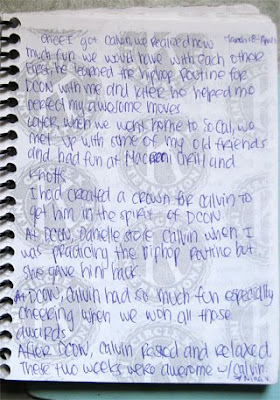 Once I got calvin, we realized how
much fun we would have with each other
First, he learned the hiphop routine for
DCON with me and later he helped me
perfect my awesome moves
Later, when we went home to SoCal, we
met up with some of my old friends
and had fun at Grill and
Knotts
I had created a crown for calvin to
get him in the spirit of DCON.
At DCON, Danielle stole calvin when I
was practicing the hiphop routine but
she gave him back
At DCON, calvin had so much fun especially
cheering when we won all those
awards.
After DCON, calvin rested and relaxed.
These two weeks were awesome w/calvin!